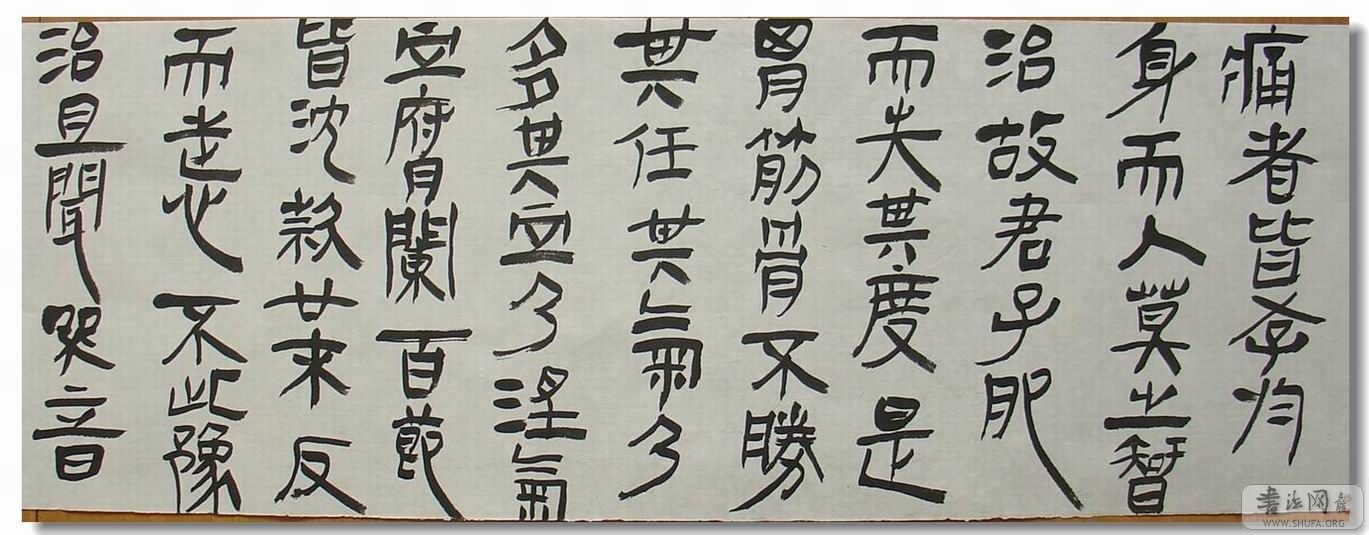 痛者皆存於
身而人莫之智
治故君子肥
而失其度是
胃筋骨不勝
其任其氣乃
多其血乃淫氣
血腐闌百節
皆沈款廿末反
而走心不此豫
治且聞哭音
书法网
WWW.SHUFA.ORG